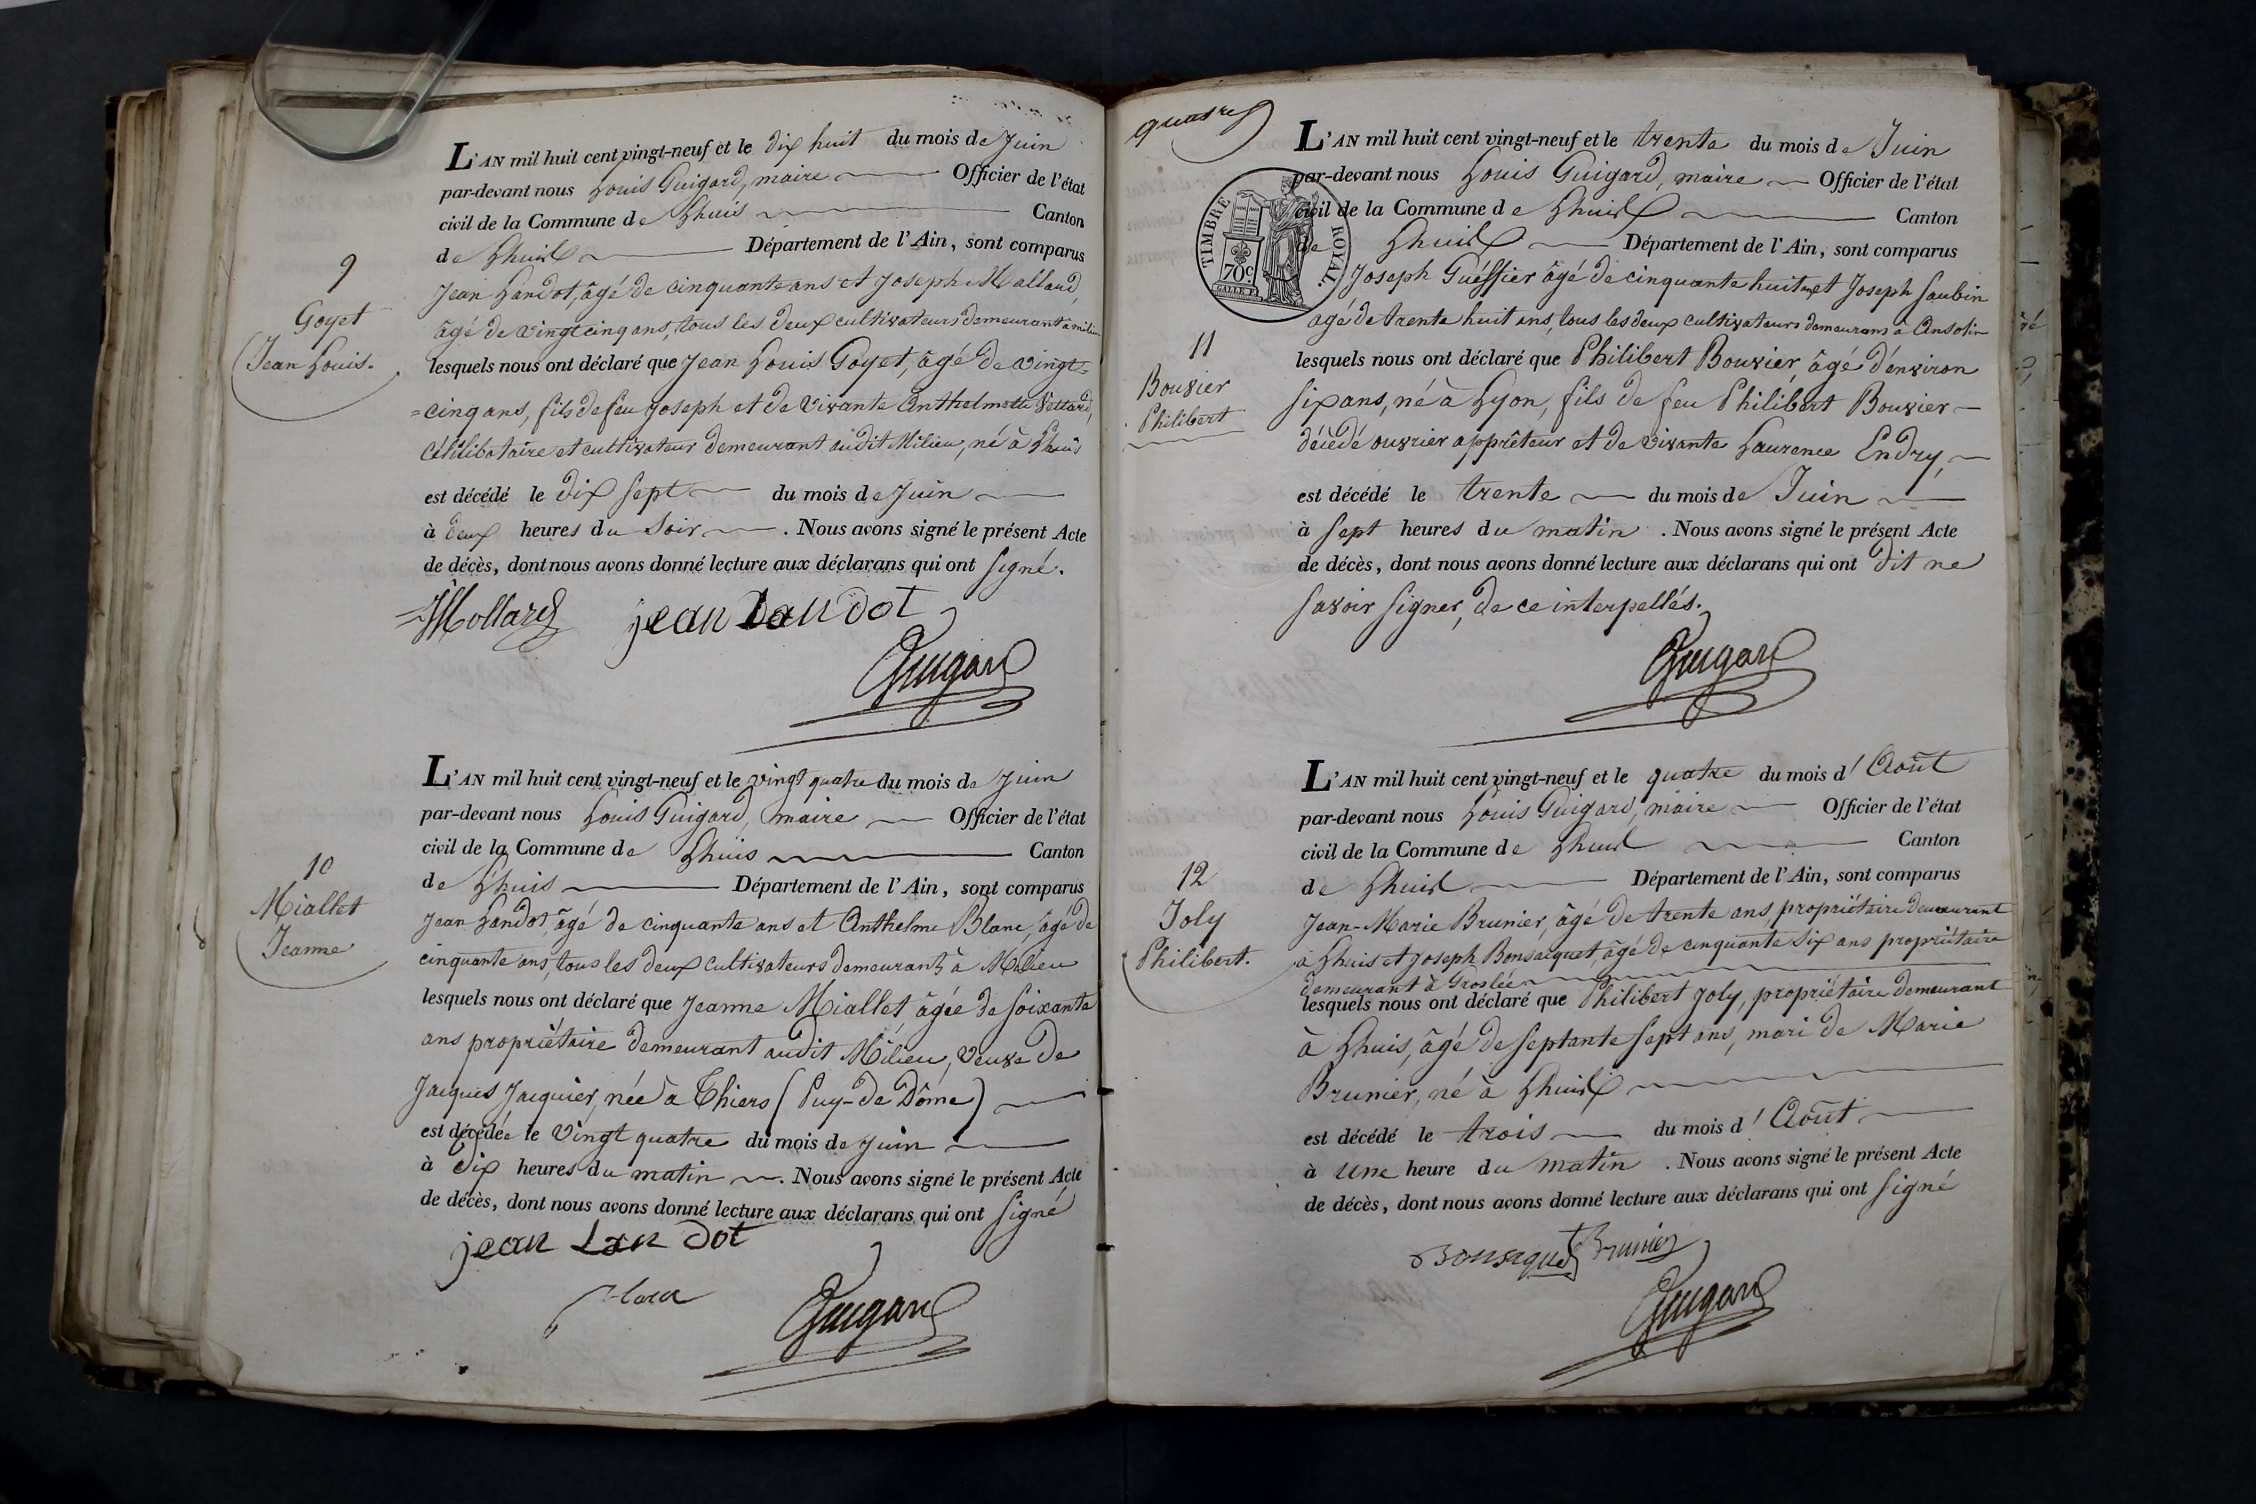 L'AN mil huit cent vingt-neuf et le dix huit du mois de Juin
par-devant nous Louis Guigard, maire Officier de l'état
civil de la Commune de Lhuis Canton
de Lhuis Département de l'Ain, sont comparus
Jean Landot, âgé de cinquante ans et Joseph Mallard,
âgé de vingt cinq ans, tous les deux cultivateurs demeurant à Milieu
9
Goyet
Jean Louis.
lesquels nous ont déclaré que Jean Louis Goyet, âgé de vingt-
=cinq ans, fils de feu Joseph et de vivante Anthelmette
célibataire et cultivateur demeurant audit Milieu, né à Lhuis
est décédé le dix sept du mois de Juin
à deux heures du soir . Nous avons signé le présent Acte
de décès, dont nous avons donné lecture aux déclarans qui ont signé.
JMollard jean Landot
Guigard
L'AN mil huit cent vingt-neuf et le vingt quatre du mois de Juin
par-devant nous Louis Guigard, maire Officier de l'état
civil de la Commune de Lhuis Canton
de Lhuis Département de l'Ain, sont comparus
10
Miallet
Jeanne
Jean Landot, âgé de cinquante ans et Anthelme Blanc, âgé de
cinquante ans, tous les deux cultivateurs demeurant à Milieu
lesquels nous ont déclaré que Jeanne Miallet âgée de soixante
ans propriétaire demeurant audit Milieu, veuve de
Jacques Jacquier, née à Thiers (Puy-de-Dôme)
est décédée le vingt quatre du mois de Juin
à dix heures du matin . Nous avons signé le présent Acte
de décès, dont nous avons donné lecture aux déclarans qui ont signé
jean Landot
Guigard
quatre
L'AN mil huit cent vingt-neuf et le trente du mois de Juin
par-devant nous Louis Guigard, maire Officier de l'état
civil de la Commune de Lhuis Canton
de Lhuis Département de l'Ain, sont comparus
TIMBRE ROYAL.
70c.
Joseph Guéffier âgé de cinquante huit ans et Joseph Saubin
âgé de trente huit ans, tous les deux cultivateurs demeurans à Ansolin
11
Bouvier
Philibert
lesquels nous ont déclaré que Philibert Bouvier, âgé d'environ
six ans, né à Lyon, fils de feu Philibert Bouvier
décédé ouvrier apprêteur et de vivante Laurence Endry,
est décédé le trente du mois de Juin
à sept heures du matin . Nous avons signé le présent Acte
de décès, dont nous avons donné lecture aux déclarans qui ont dit ne
savoir signer, de ce interpellés.
Guigard
L'AN mil huit cent vingt-neuf et le quatre du mois d'Août
par-devant nous Louis Guigard, maire Officier de l'état
civil de la Commune de Lhuis Canton
de Lhuis Département de l'Ain, sont comparus
12
Joly
Philibert.
Jean-Marie Brunier, âgé de trente ans propriétaire demeurant
à Lhuis et Joseph Bonsacquet, âgé de cinquante six ans propriétaire
demeurant à Groslée
lesquels nous ont déclaré que Philibert Joly, propriétaire demeurant
à Lhuis, âgé de septante sept ans, mari de Marie
Brunier, né à Lhuis
est décédé le trois du mois d'Août
à une heure du matin . Nous avons signé le présent Acte
de décès, dont nous avons donné lecture aux déclarans qui ont signé
Bonsaquet Brunier
Guigard